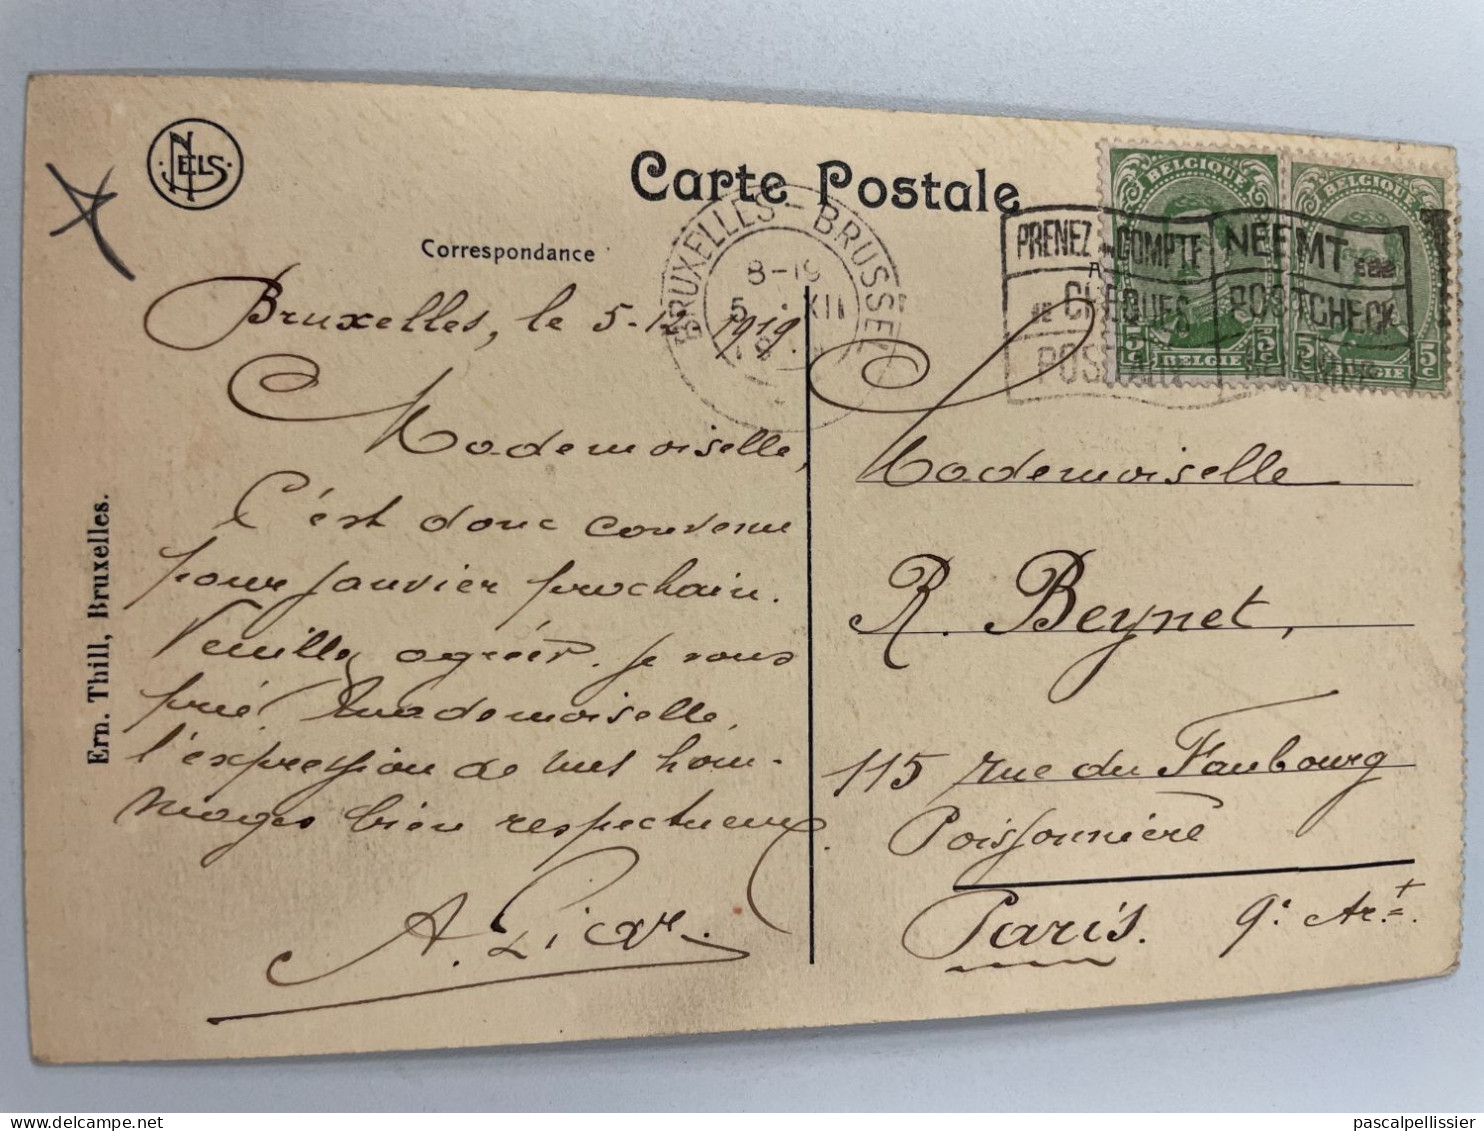 NELS
Carte Postale
Correspondance
BRUXELLES - BRUSSEL
8-19
5 · XII
PRENEZ UN COMPTE
DE CHEQUES
NEEMT EENE
POSTCHECK
BELGIQUE
5c BELGIE 5c
BELGIQUE
5c BELGIE 5c
Ern. Thill, Bruxelles.
Bruxelles, le 5-12 1919
Mademoiselle,
C'est donc convenu
pour janvier prochain.
Veuillez agréer, je vous
prie, Mademoiselle,
l'expression de mes hom-
mages bien respectueux.
A.
Mademoiselle
R. Beynet,
115 rue du Faubourg
Poissonnière
Paris. 9e Art.
pascalpellissier